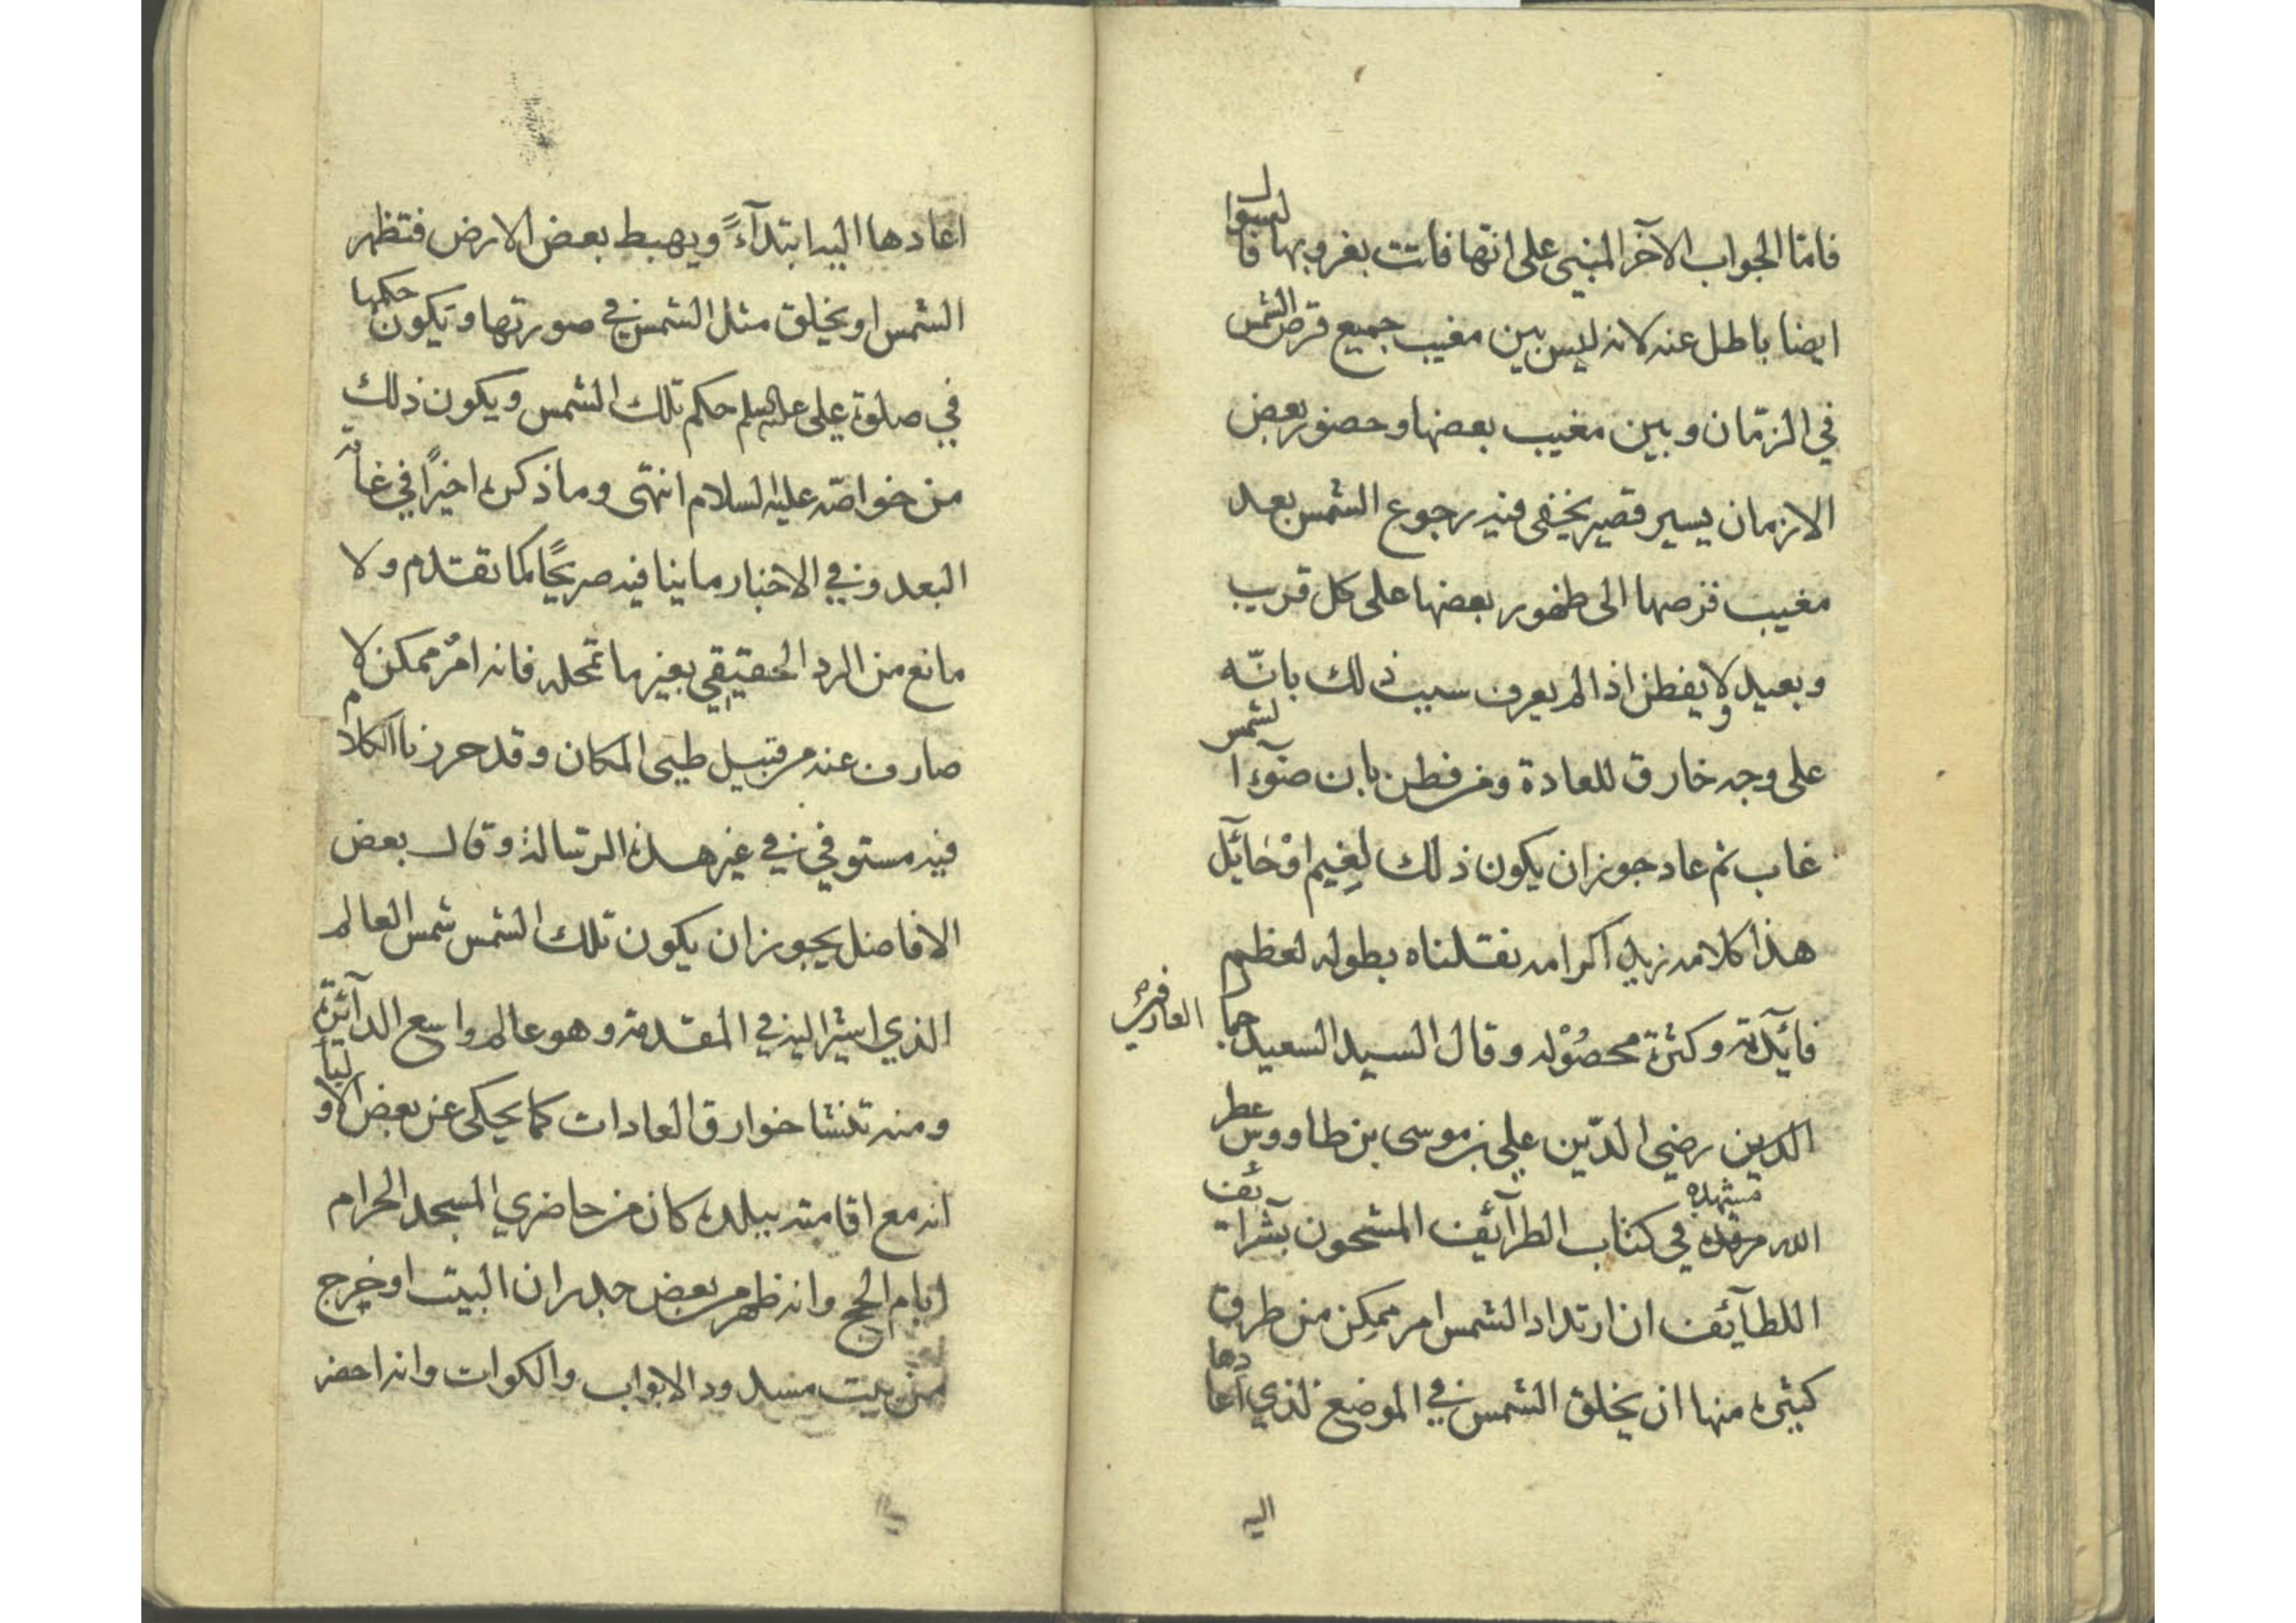 فامّا الجواب الآخر المبنى على انّها فاتت بغروبها فالسوا
ايضا باطل عنه لانه ليس بين مغيب جميع قرص الشمس
في الزمّان وبين مغيب بعضها وحضور بعض
الازمان يسير قصير يخفى فيه رجوع الشمس بعد
مغيب قرصها الى ظهور بعضها على كل قريب
وبعيد ولا يفطن اذا لم يعرف سبب ذلك بانّه
على وجه خارق للعادة ومن فطن بان ضوء الشمس
غاب ثم عاد جوز ان يكون ذلك لغيم اوْ حائل
هذا كلامه زيد اكرامه نقلناه بطوله لعظيم
فائدته وكثرة محصُوْله وقال السيد السعيد جما العارفين
الدين رضي الدّين علي بن موسى بن طاووس عطر
الله مرقده مشهده في كتاب الطرآئف المشحون بشرائف
اللطآئف ان ارتداد الشمس امر ممكن من طرق
كثيرة منها ان يخلق الشمس في الموضع لذي اعادها
اليه
اعادها اليه ابتدآءً ويهبط بعض الارض فتظهر
الشمس او يخلق مثل الشمس في صورتها و يكون حكمها
في صلوة علي عليه السلم حكم تلك الشمس ويكون ذلك
من خواصّه عليه السلام انتهى وما ذكره اخيرًا في غاية
البعد و في الاخبار ما ينافيه صريحًا كما تقدم ولا
مانع من الرد الحقيقي بغير ما تمحله فانه امرٌ ممكن لا
صارف عنه من قبيل طيى المكان وقد حررنا الكلام
فيه مستوفي في غير هذه الرسالة وقال بعض
الافاضل يجوز ان يكون تلك الشمس شمس العالم
الذي اشير اليه في المقدمة وهو عالم واسع الدآئرة
ومنه تنشا خوارق العادات كما يحكى عن بعض الاوليا
انه مع اقامته ببلده كان من حاضري المسجد الحرام
ايام الحج وانه ظهر من بعض جدران البيت او خرج
من بيت مسدود الابواب والكوات وانه احضر